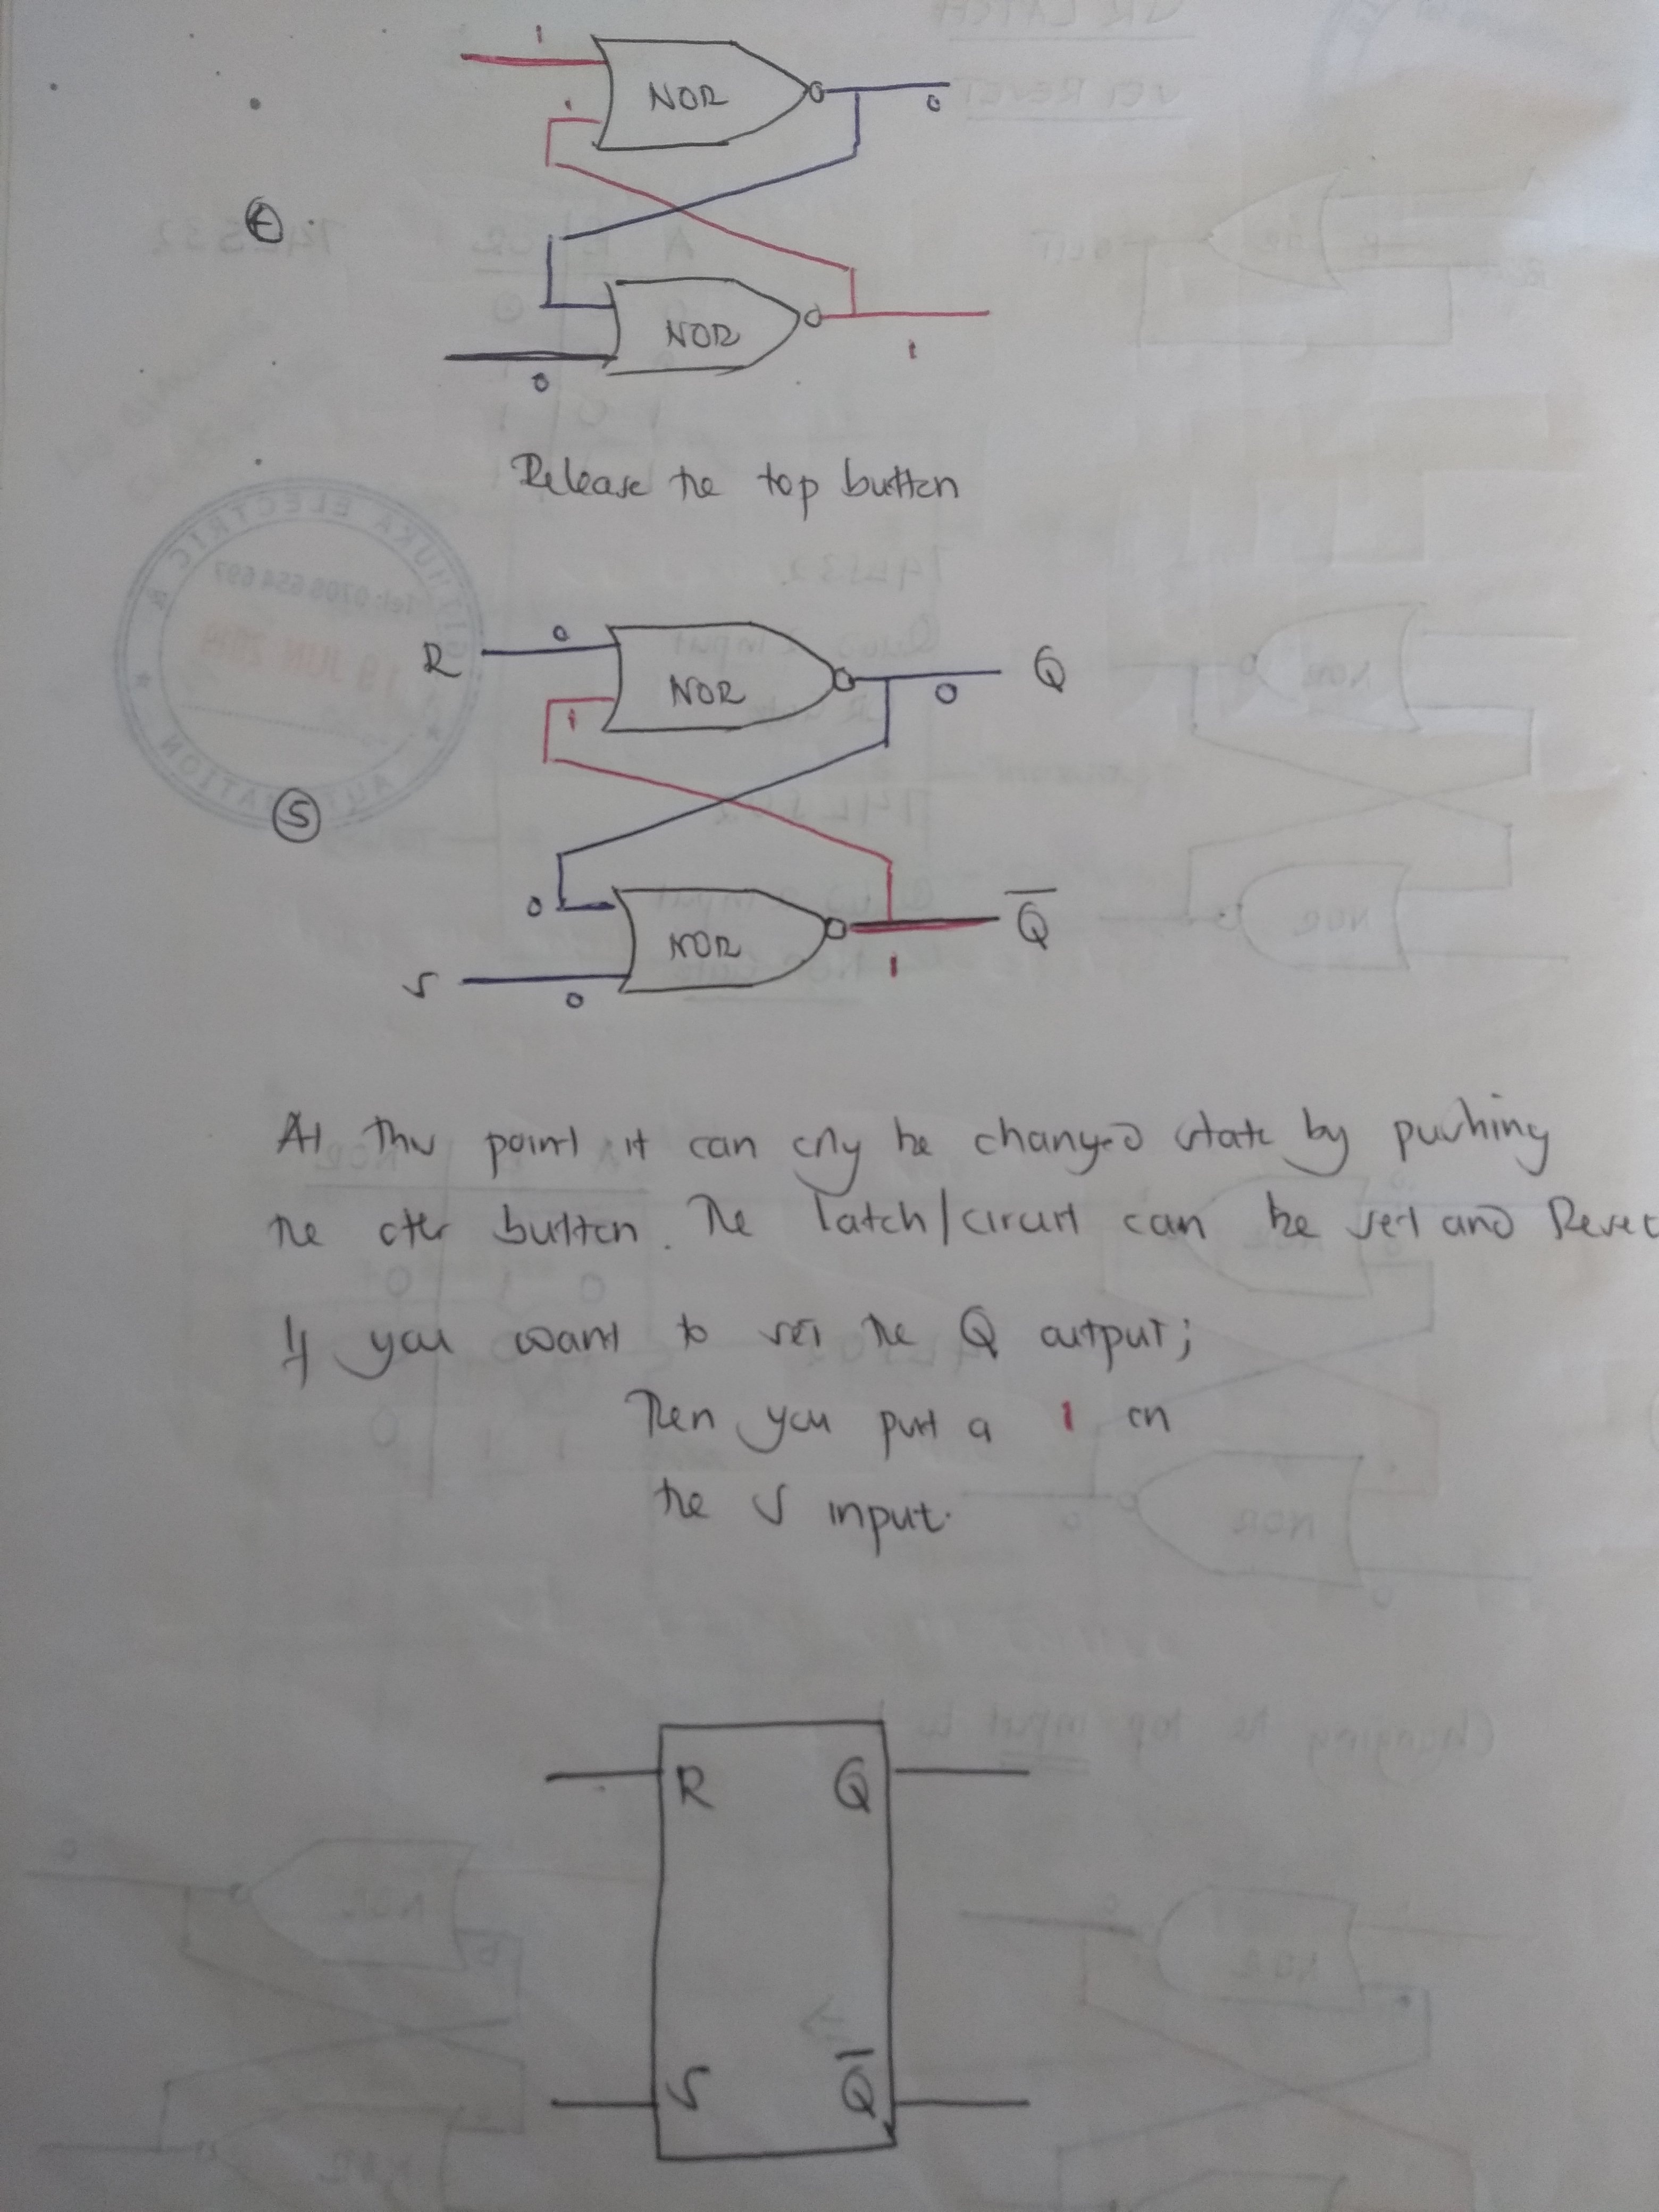 1
NOR
1
0
④
NOR
0
1
Release the top button
R
0
NOR
0
Q
1
⑤
0
NOR
Q̅
S
0
1
At this point it can only be changed state by pushing
the other button. The latch/circuit can be set and Reset
If you want to set the Q output;
Then you put a 1 on
the S input.
R Q
S Q̅